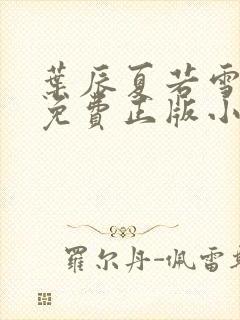 葉辰夏若雪
免費正版小
羅尔丹-佩雷